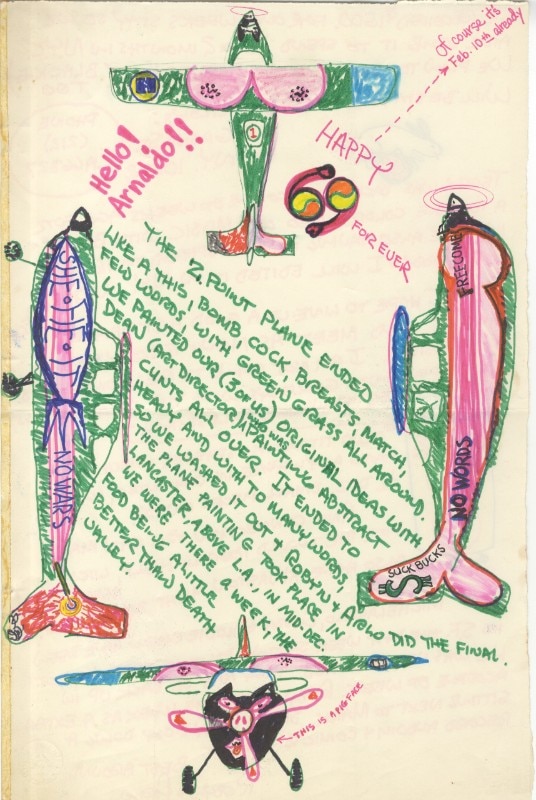 of course it's
Feb. 10th already
Hello!
Arnaldo!!
1
HAPPY
69
FOREVER
THE Z. POINT PLANE ENDED
LIKE A THIS, BOMB, COCK, BREASTS, MATCH,
FEW WORDS, WITH GREEN GRASS ALL AROUND.
WE PAINTED OUR (3 OF US) ORIGINAL IDEAS WITH
DEAN (ART DIRECTOR), WHO WAS PAINTING ABSTRACT
CUNTS ALL OVER. IT ENDED TO
HEAVY AND WITH TO MANY WORDS
SO WE WASHED IT OUT & ROBYN & ARLO DID THE FINAL.
THE PLANE PAINTING TOOK PLACE IN
LANCASTER, ABOVE L.A., IN MID-DEC.
WE WERE THERE A WEEK THE
FOOD BEING A LITTLE
BETTER THAN DEATH
VALLEY.
SHE·HE·IT
NO WARS
NO WORDS
SUCK BUCKS
$
THIS IS A PIG FACE